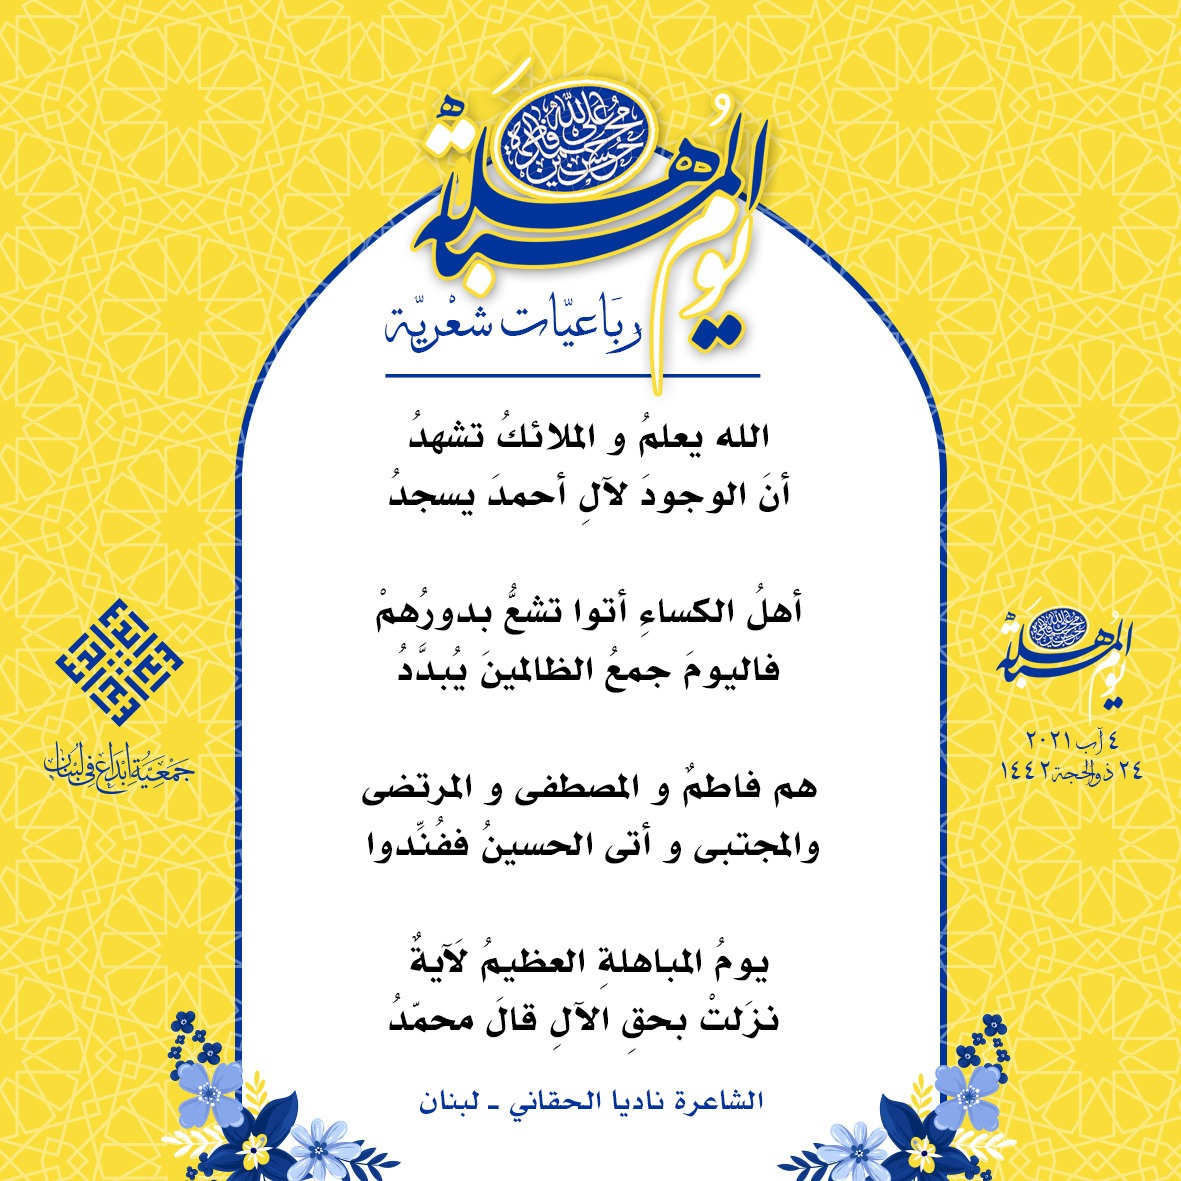 يوم المباهلة
محمد علي فاطمة حسن حسين
رباعيّات شعْريّة
الله يعلمُ و الملائكُ تشهدُ
أنَ الوجودَ لآلِ أحمدَ يسجدُ
أهلُ الكساءِ أتوا تشعُّ بدورُهمْ
فاليومَ جمعُ الظالمينَ يُبدَّدُ
هم فاطمٌ و المصطفى و المرتضى
والمجتبى و أتى الحسينُ ففُنِّدوا
يومُ المباهلةِ العظيمُ لَآيةٌ
نزَلتْ بحقِ الآلِ قالَ محمّدُ
الشاعرة ناديا الحقاني ـ لبنان
جمعيّة إبداع في لبنان
يوم المباهلة
٤ آب ٢٠٢١
٢٤ ذو الحجة ١٤٤٢